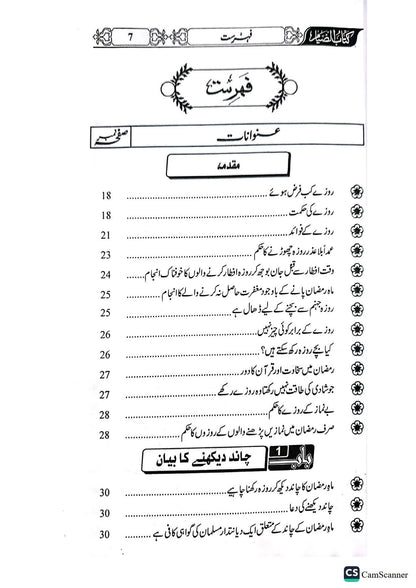 کتاب الصیام فہرست 7
فہرست
عنوانات صفحہ نمبر
مقدمہ
روزے کب فرض ہوئے 18
روزے کی حکمت 18
روزے کے فوائد 21
عمداً بلا عذر روزہ چھوڑنے کا حکم 23
وقت افطار سے قبل جان بوجھ کر روزہ افطار کرنے والوں کا خوفناک انجام 24
ماہ رمضان پانے کے باوجود مغفرت حاصل نہ کرنے والے کا انجام 25
روزہ جہنم سے بچنے کے لیے ڈھال ہے 25
روزے کے برابر کوئی چیز نہیں 26
کیا بچے روزہ رکھ سکتے ہیں؟ 26
رمضان میں سخاوت اور قرآن کا دور 27
جو شادی کی طاقت نہیں رکھتا وہ روزے رکھے 27
بے نماز کے روزے کا حکم 28
صرف رمضان میں نمازیں پڑھنے والوں کے روزوں کا حکم 28
باب 1 چاند دیکھنے کا بیان
ماہِ رمضان کا چاند دیکھ کر روزہ رکھنا چاہیے 30
چاند دیکھنے کی دعا 30
ماہِ رمضان کے چاند کے متعلق ایک دیانتدار مسلمان کی گواہی کافی ہے 30
CS CamScanner